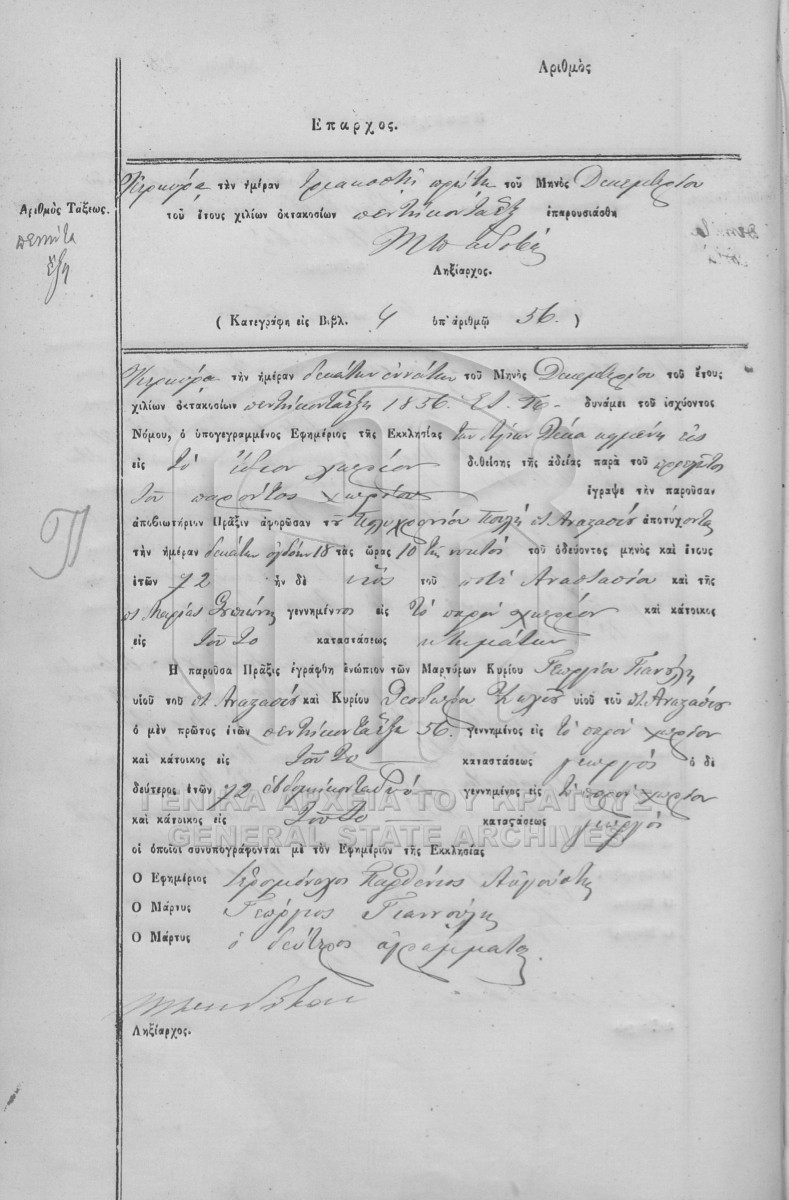 Ἀριθμὸς
Ἔπαρχος.
Κερκύρα τὴν ἡμέραν τριακοστὴ πρώτη τοῦ Μηνὸς Δεκεμβρίου
Ἀριθμὸς Τάξεως.
τοῦ ἔτους χιλίων ὀκτακοσίων πεντήκοντα ἕξ ἐπαρουσιάσθη
πενήντα
ἕξη
Ληξίαρχος.
( Κατεγράφη εἰς Βιβλ. 4 ὑπ' ἀριθμῷ 56. )
Κερκύρα τὴν ἡμέραν δεκάτην ἐννάτην τοῦ Μηνὸς Δεκεμβρίου τοῦ ἔτους
χιλίων ὀκτακοσίων πεντήκοντα ἕξη 1856. Ε. Π. δυνάμει τοῦ ἰσχύοντος
Νόμου, ὁ ὑπογεγραμμένος Ἐφημέριος τῆς Ἐκκλησίας τῶν Ἁγίων Δέκα κειμένη εἰς
εἰς τὸ ἴδιον χωρίον διθείσης τῆς ἀδείας παρὰ τοῦ
τοῦ παρόντος χωρίου ἔγραψε τὴν παροῦσαν
ἀποβιωτήριον Πρᾶξιν ἀφορῶσαν τὸν Πολυχρονίου ἀποτύχοντα
τὴν ἡμέραν δεκάτην ὀγδόην 18 τὰς ὥρας 10 τῆς νυκτός τοῦ ὁδεύοντος μηνὸς καὶ ἔτους
ἐτῶν 72 ἦν δὲ υἱὸς τοῦ ποτὲ Ἀναστασίου καὶ τῆς
Μαρίας γεννημένος εἰς τὸ παρὸν χωρίον καὶ κάτοικος
εἰς τοῦτο καταστάσεως κτηματίας
Ἡ παροῦσα Πρᾶξις ἐγράφθη ἐνώπιον τῶν Μαρτύρων Κυρίου Γεωργίου Γιανούλη
υἱοῦ τοῦ καὶ Κυρίου Θεοδώρου υἱοῦ τοῦ
ὁ μὲν πρῶτος ἐτῶν πεντήκοντα ἕξη 56. γεννημένος εἰς τὸ παρὸν χωρίον
καὶ κάτοικος εἰς τοῦτο καταστάσεως γεωργός ὁ δὲ
δεύτερος ἐτῶν 72 ἑβδομήκοντα δύο γεννημένος εἰς τὸ παρὸν χωρίον
καὶ κάτοικος εἰς τοῦτο καταστάσεως γεωργός
οἱ ὁποῖοι συνυπογράφονται μὲ τὸν Ἐφημέριον τῆς Ἐκκλησίας
Ὁ Ἐφημέριος Ἱερομόναχος Παρθένιος Αὐγούστης
Ὁ Μάρτυς Γεώργιος Γιαννούλης
Ὁ Μάρτυς ὁ δεύτερος ἀγράμματος
Ληξίαρχος.
Π
ΓΕΝΙΚΑ ΑΡΧΕΙΑ ΤΟΥ ΚΡΑΤΟΥΣ
GENERAL STATE ARCHIVES